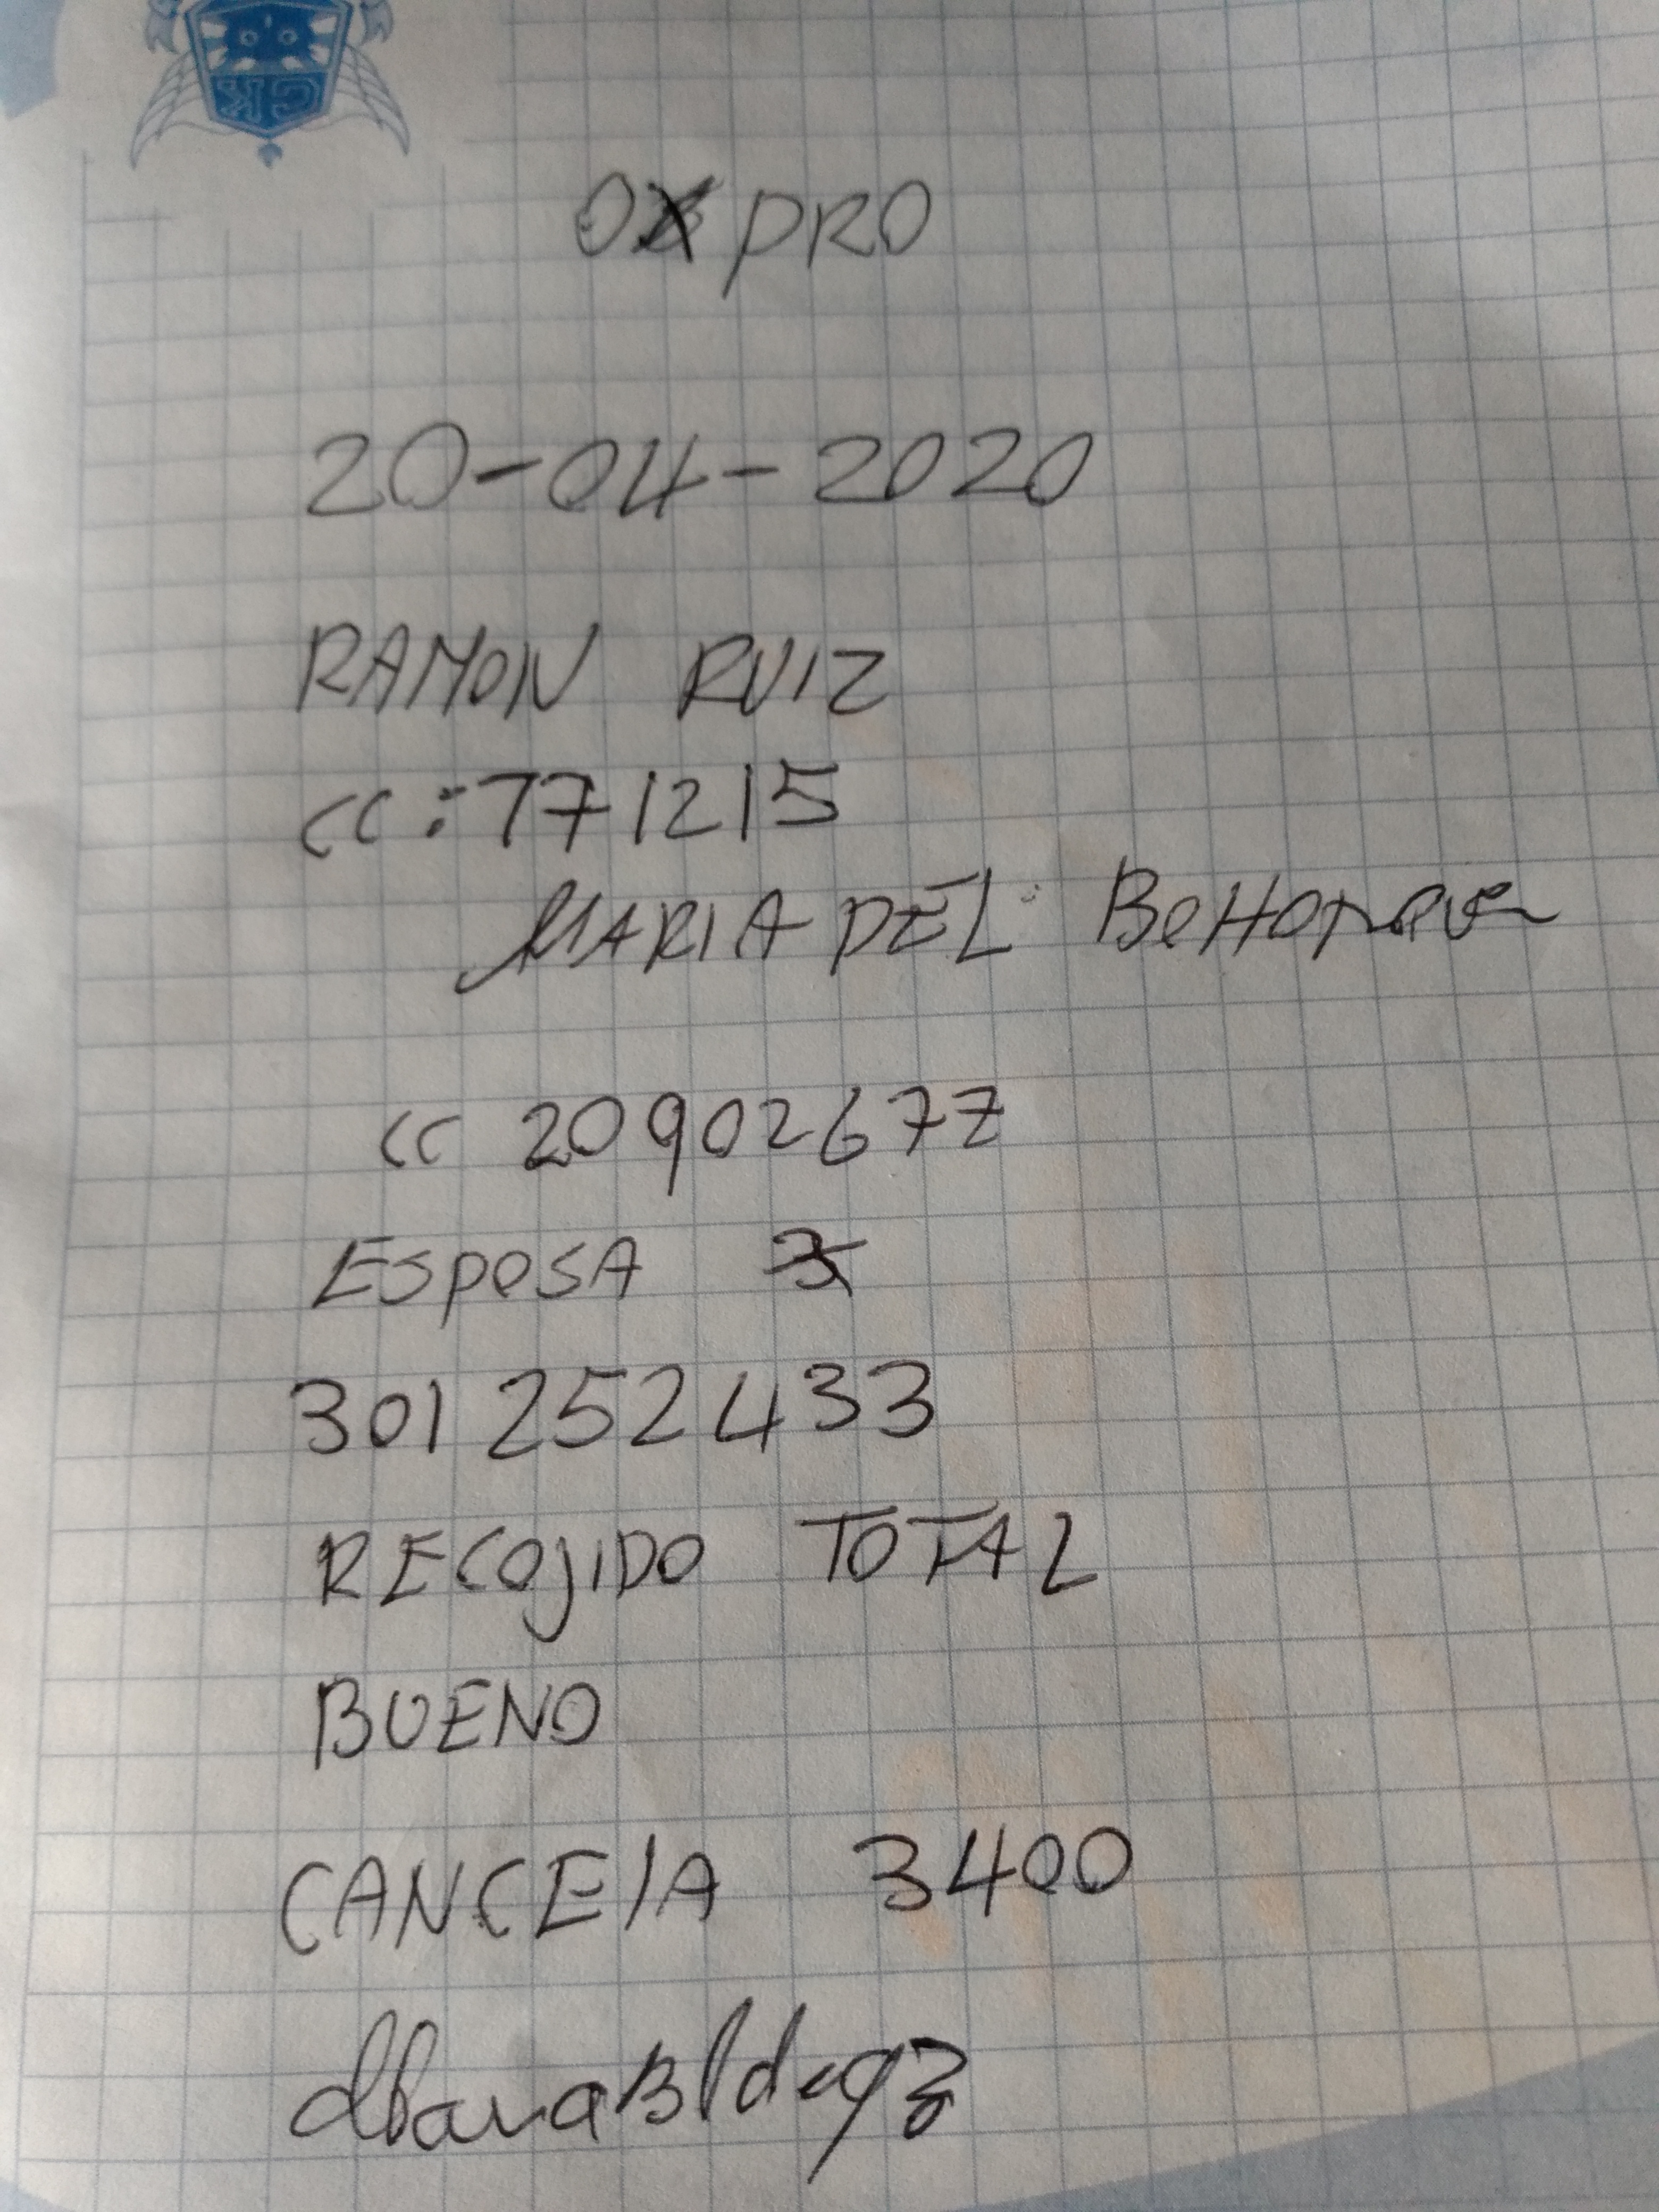 OX PRO
20-04-2020
RAMON RUIZ
CC: 771215
MARIA DEL
CC 20902677
ESPOSA
301 252 2433
RECOJIDO TOTAL
BUENO
CANCELA 3400